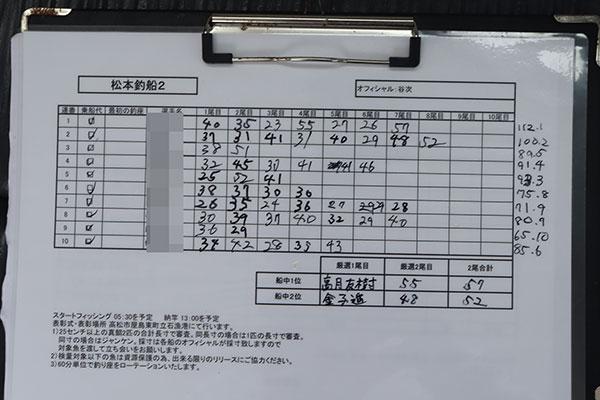 松本釣船2
オフィシャル:谷次
連番 乗船代 最初の釣座 選手名 1尾目 2尾目 3尾目 4尾目 5尾目 6尾目 7尾目 8尾目 9尾目 10尾目
1 40 35 23 55 27 26 57 112.1
2 37 31 41 37 40 29 48 52 100.2
3 38 51 89.5
4 32 45 41 41 46 91.4
5 25 52 41 93.3
6 38 37 30 30 75.8
7 26 35 24 36 27 28 71.9
8 30 39 37 40 32 29 40 80.9
9 36 29 65.10
10 42 28 39 43 85.6
厳選1尾目 厳選2尾目 2尾合計
船中1位 55 57
船中2位 48 52
スタートフィッシング 05:30を予定 納竿 13:00を予定
表彰式・表彰場所 高松市屋島東町立石漁港にて行います。
1)25センチ以上の真鯛2匹の合計長寸で審査。同長寸の場合は1匹の長寸で審査。
同寸の場合はジャンケン。採寸は各船のオフィシャルが採寸致しますので
対象魚を渡して立ち会いをお願いします。
2)検量対象以下の魚は資源保護の為、出来る限りのリリースにご協力ください。
3)60分単位で釣り座をローテーションいたします。